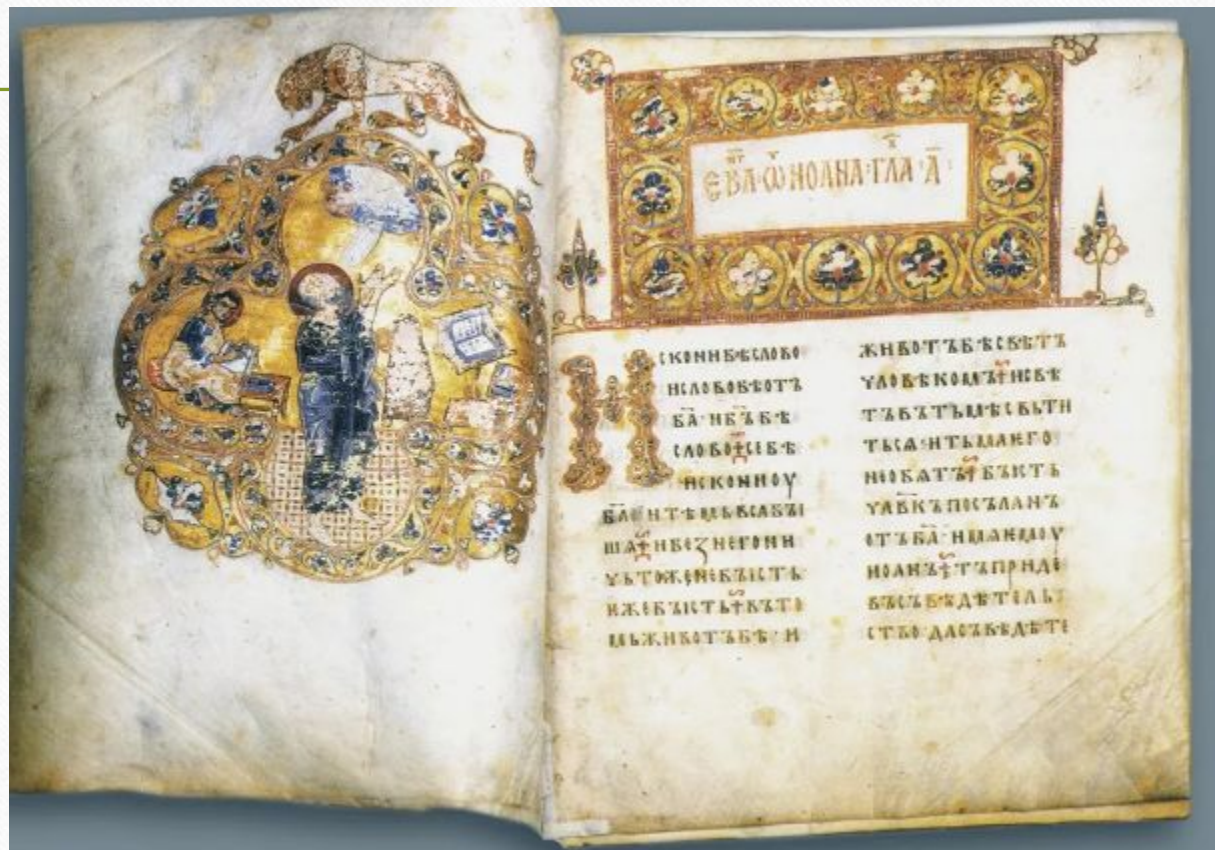 ЄВА҃ ѾИОАНА ГЛА А҃
ИСКОНИБѢСЛОВО
ИСЛОВОБѢОТЪ
БА҃ ИБ҃ЪБѢ
СЛОВО СЕБѢ
ИСКОНИОУ
БА҃ ИТѢМЬВСАБЪІ
ША ИБЕЗНЕГОНИ
ЧЬТОЖЕНЕБЪІСТЬ
ИЖЕБЪІСТЬ ВЪТО
МЬЖИВОТЪБѢ И
ЖИВОТЪБѢСВѢТЪ
ЧЛОВѢКОМЪ ИСВѢ
ТЪВЪТЬМѢСВЬТИ
ТЬСѦ ИТЬМАѤГО
НЕОБѦТЪ БЪІСТЬ
ЧЛВ҃КЪПОСЪЛАНЪ
ОТЪБА҃ ИМѦѤМОУ
ИОАНЪ ТЪПРИДЕ
ВЪСЪВѢДѢТЕЛЬ
СТВО ДАСЪВѢДѢТЕ